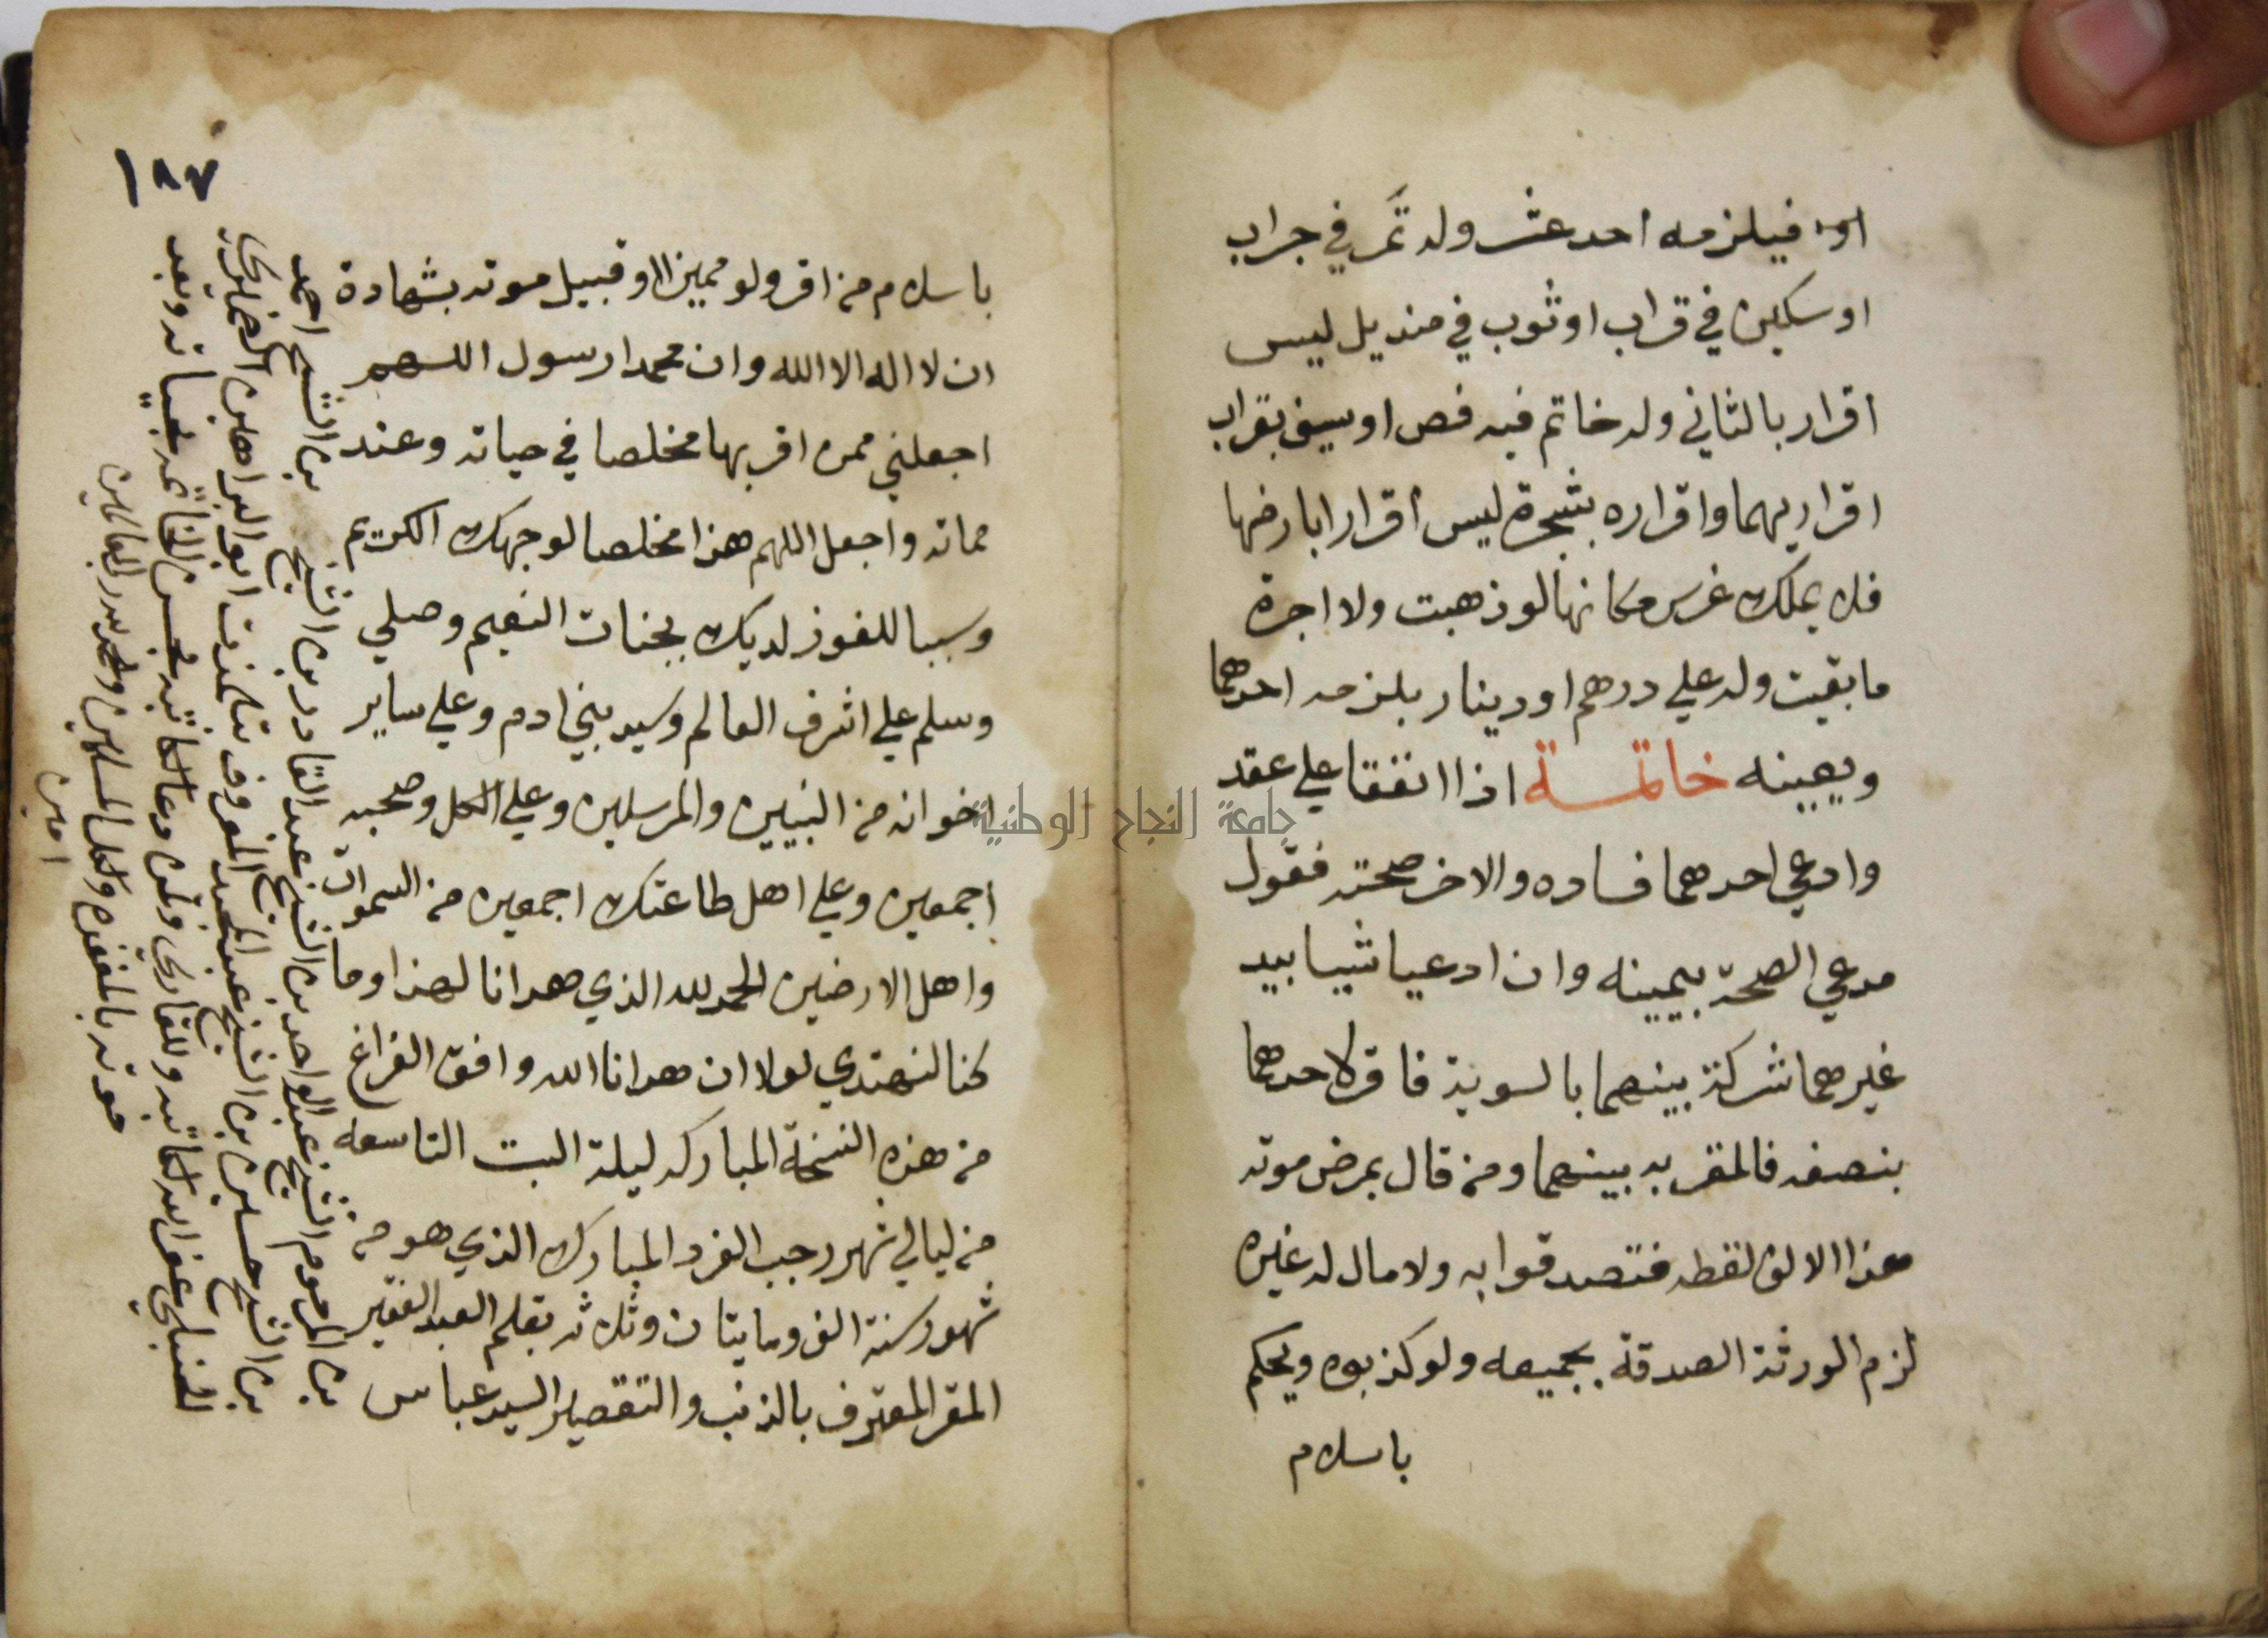 اول فيلزمه احد عشر وله تمر في جراب
او سكين في قراب او ثوب في منديل ليس
اقرار بالثاني وله خاتم فيه فص او سيف بقراب
اقرار بهما واقراره بشجرة ليس اقرارا بارضها
فلا يملك غرس مكانها لو ذهبت ولا اجرة
ما بقيت وله علي درهم او دينار يلزمه احدهما
ويعينه خاتمة اذا اتفقا علي عقد
وادعي احدهما فساده والاخر صحته فقول
مدعي الصحة بيمينه وان ادعيا شيا بيد
غيرهما شركة بينهما بالسوية فاقر لاحدهما
بنصفه فالمقر به بينهما ومن قال بمرض موته
هذا الالف لقطه فتصدقوا به ولا مال له غيره
لزم الورثة الصدقة بجميعه ولو كذبوه ويحكم
باسلام
١٨٧
باسلام من اقر ولو مميزا او قبيل موته بشهادة
ان لا اله الا الله وان محمدا رسول اللهم
اجعلني ممن اقر بها مخلصا في حياته وعند
مماته واجعل اللهم هذا مخلصا لوجهك الكريم
وسببا للفوز لديك بجنات النعيم وصلي
وسلم علي اشرف العالم وسيد بني ادم وعلي ساير
اخوانه من النبيين والمرسلين وعلي الكل وصحبه
اجمعين وعلي اهل طاعتك اجمعين من السموات
واهل الارضين الحمد لله الذي هدانا لهذا وما
كنا لنهتدي لولا ان هدانا الله وافق الفراغ
من هذه النسخة المباركه ليلة السبت التاسعه
من ليالي شهر رجب الفرد المبارك الذي هو من
شهور سنة الف ومايتان وثلاثه بقلم العبد الفقير
المقر المعترف بالذنب والتقصير السيد عباس
بن المرحوم الشيخ عبد الواحد بن الشيخ عبد القادر بن الشيخ بن الشيخ احمد
بن الشيخ حسين بن الشيخ عبد المعروف
الحنبلي عفى الله لكاتبه وللقاري ولمن دعا لكاتبه بحسن الخاتمه بحياته وبعد
موته بالمغفره ولكل المسلمين والحمد لله رب العالمين
امين
جامعة النجاح الوطنية